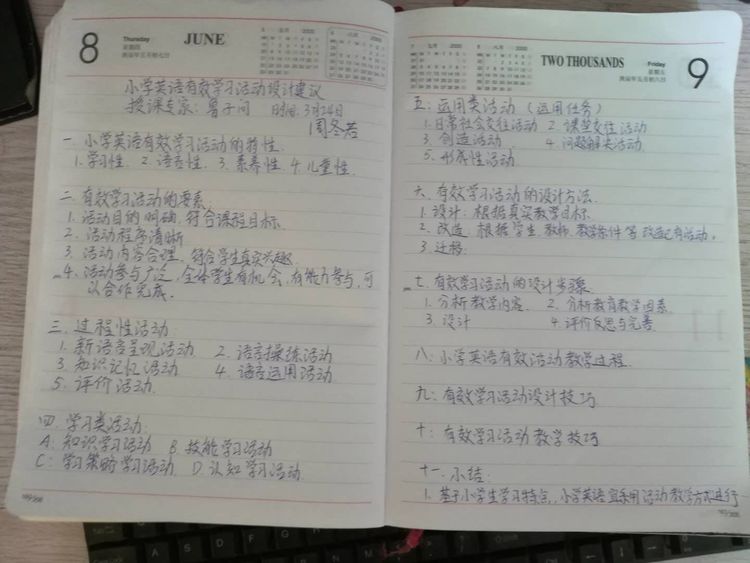 8
Thursday
星期四
庚辰年五月初七
JUNE
小学英语有效学习活动设计建议
授课专家：鲁子问 时间：3月24日
周冬若
一、小学英语有效学习活动的特性.
1. 学习性. 2. 语言性. 3. 素养性. 4. 儿童性.
二. 有效学习活动的要素.
1. 活动目的明确. 符合课程目标.
2. 活动程序清晰
3. 活动内容合理. 符合学生真实兴趣.
4. 活动参与广泛. 全体学生有机会,有能力参与,可
以合作完成.
三. 过程性活动:
1. 新语言呈现活动 2. 语言操练活动
3. 知识记忆活动 4. 语言运用活动
5. 评价活动.
四. 学习类活动:
A. 知识学习活动 B. 技能学习活动
C: 学习策略学习活动. D. 认知学习活动.
TWO THOUSANDS
Friday
星期五
庚辰年五月初八
9
五: 运用类活动 (运用任务)
1. 日常社会交往活动 2. 课堂交往活动
3. 创造活动 4. 问题解决活动
5. 形成性活动.
六. 有效学习活动的设计方法.
1. 设计: 根据真实教学目标.
2. 改造. 根据学生. 教师. 教学条件等改造已有活动.
3. 迁移.
七. 有效学习活动的设计步骤.
1. 分析教学内容. 2. 分析教育教学因素.
3. 设计 4. 评价反思与完善
八: 小学英语有效活动教学过程.
九: 有效学习活动设计技巧
十: 有效学习活动教学技巧
十一. 小结:
1. 基于小学生学习特点, 小学英语宜采用活动教学方式进行